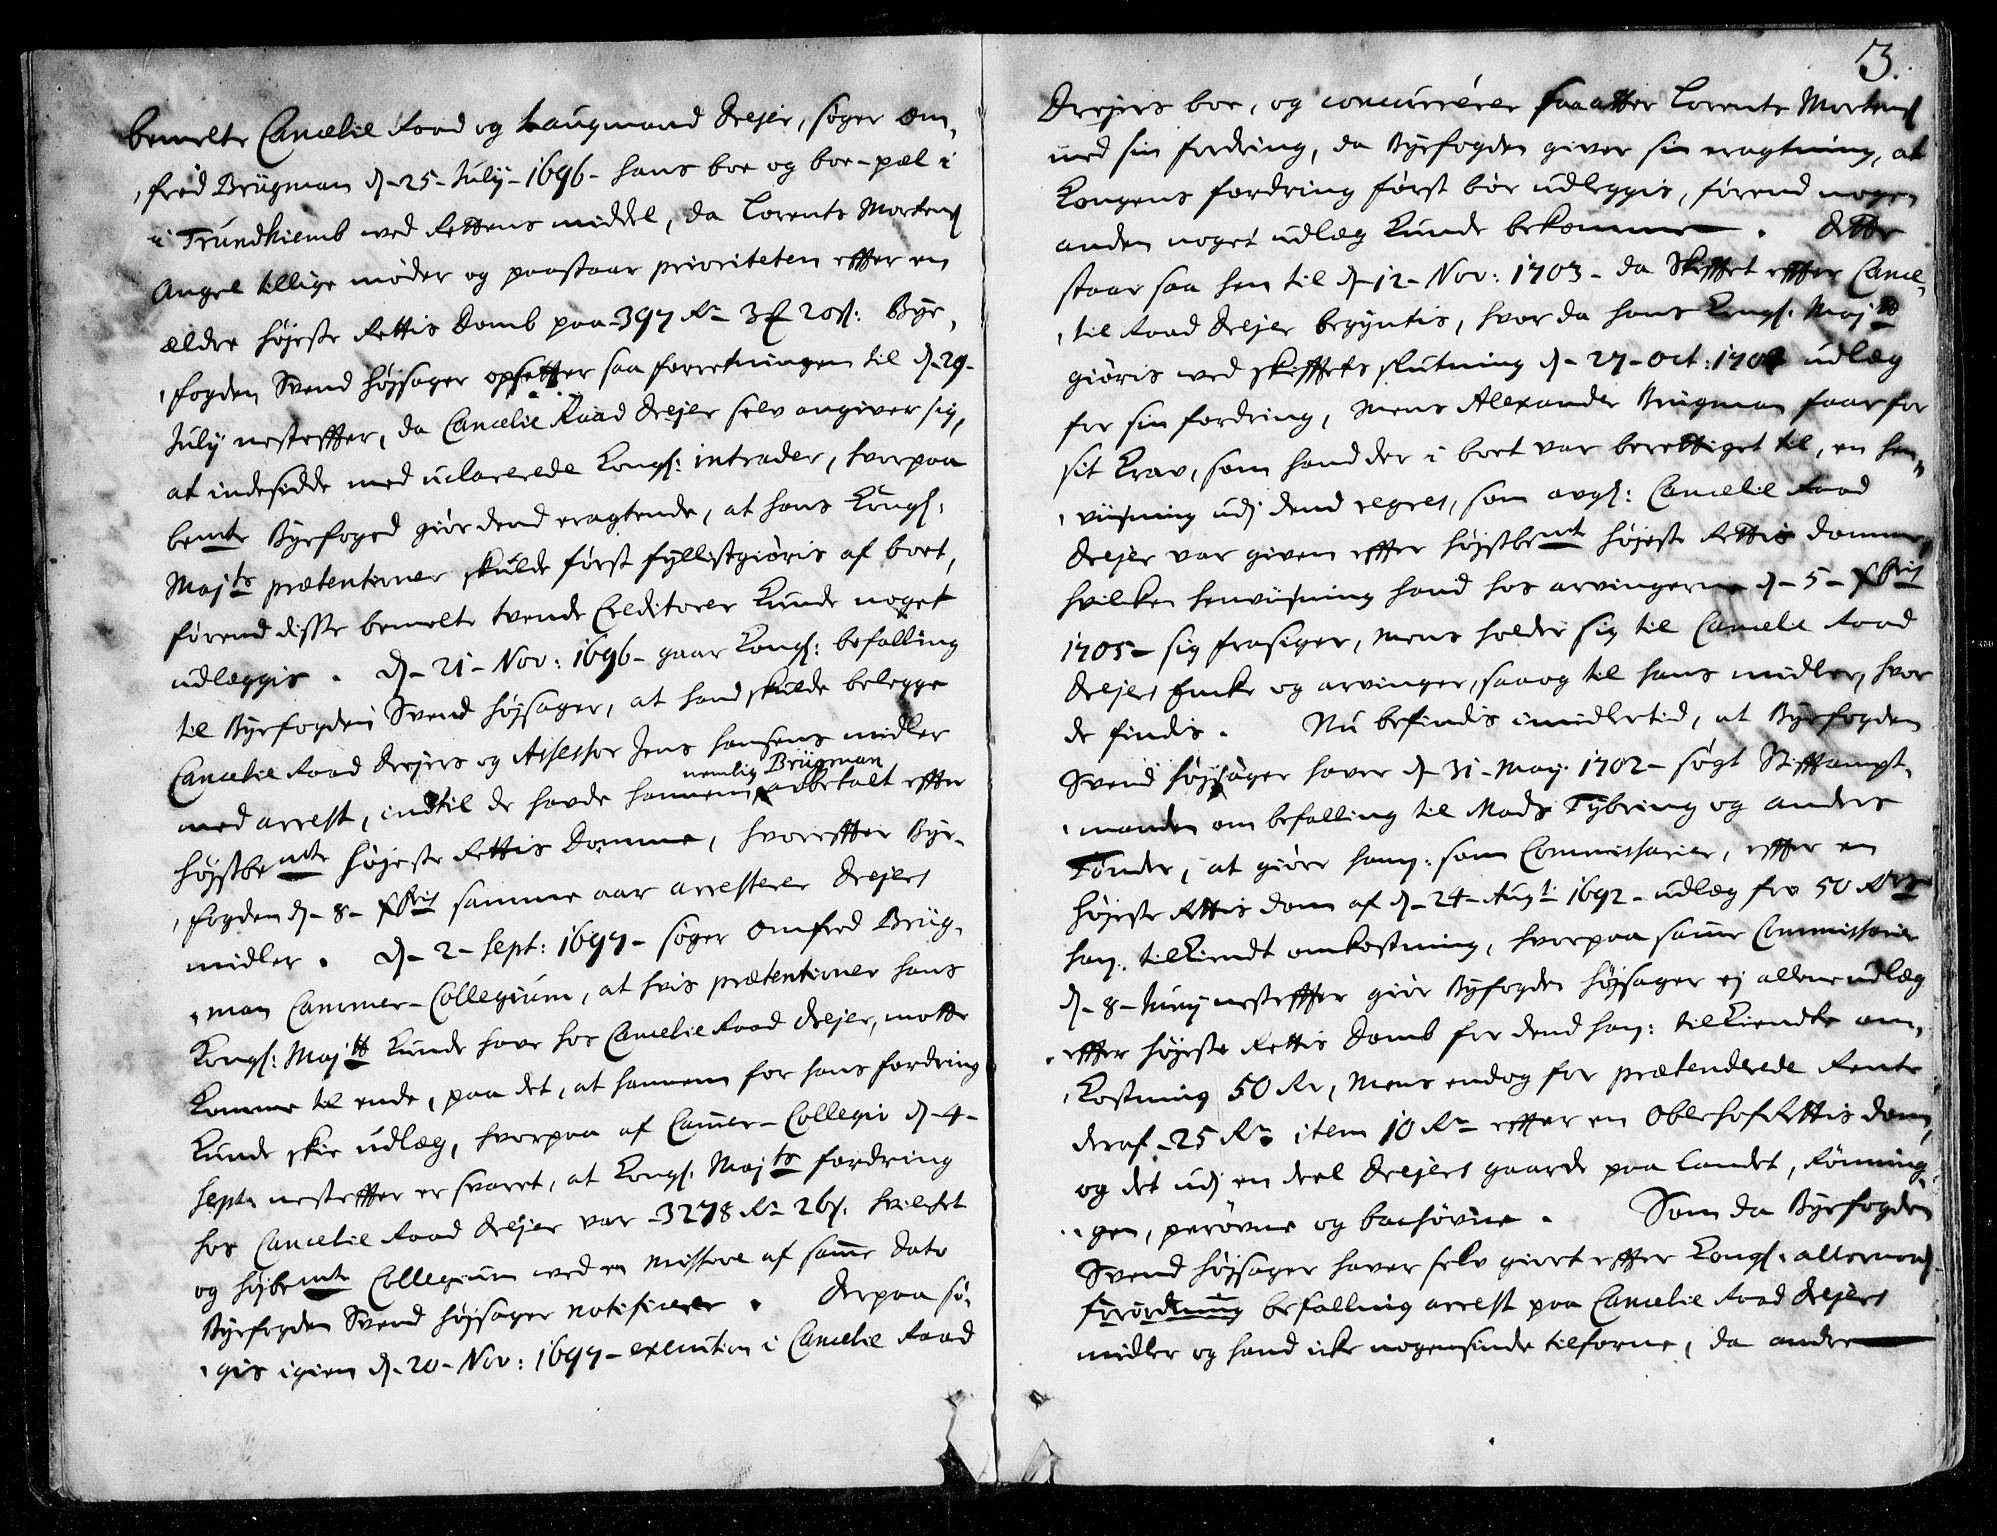 bemelte Cancelie Raad og Laugmand Drejer, søger Om-
fred Brügman d. 25. July 1696 hans boe og boe-pæl i
i Trundhiemb ved Rettens middel, da Lorents Mortens.
Angel tillige møder og paastaar prioriteten effter en
ældre høyeste Rettis Domb paa 397 Rdr 3 20 s: Bye-
fogden Svend Højsager opsetter saa forretningen til d. 29
July nesteffter, da Cancelie Raad Drejer selv angiver sig,
at indesidde med uclarerede Kongl: intrader, hvorpaa
bemte Byefoged giør dend eragtende, at hans Kongl:
Majts prætentioner skulde først fyllistgiøris af boet,
førend disse bemelte tvende Creditorer Kunde noget
udlæggis. d. 21 Nov: 1696 gaar Kongl: befalling
til Byefogden Svend Højsager, at hand skulde belegge
Cancelie Raad Drejers og Assessor Jens Hansens midler
nemlig Brügman
med arrest, indtil de hafde hannem, betalt effter
højstbemte Højeste Rettis Domme, hvoreffter Bye-
fogden d. 8 Xbris samme aar arresterer Drejers
midler. d. 2 Sept: 1697 søger Omfred Brüg-
man Cammer-Collegium, at hvis prætentioner hans
Kongl: Majtt Kunde have hos Cancelie Raad Drejer, motte
Komme til ende, paa det, at hannem for hans fordring
Kunde skee udlæg, hvorpaa af Camer-Collegio d. 4
Sept. nesteffter er svaret, at Kongl. Majts fordring
hos Cancelie Raad Drejer var 3278 Rdr 26 s. hvilchet
og højbemte Collegium ved en missive af samme dato
Byefogden Svend Højsager notificerer. Derpaa sø-
gis igien d. 20 Nov: 1697 execution i Cancelie Raad
3.
Drejers boe, og concurrérer saa atter Lorents Mortens.
med sin fordring, da Byefogden giver sin eragtning, at
Kongens fordring først bør udleggis, førend nogen
anden noget udlæg Kunde bekomme. Dette
staar saa hen til d. 12 Nov: 1703 da Skifftet effter Cance-
lie Raad Drejer begyntis, hvor da hans Kongl. Majtt
giøris ved skifftets slutning d. 27 Oct: 1704 udlæg
for sin fordring, mens Alexander Brügman faar for
sit Krav, som hand der i boet var berettiget til, en hen-
viisning udj dend regres, som avgl: Cancelie Raad
Drejer var given effter højstbemte højeste Rettis domme,
hvilken henviisning hand hos arvingerne d. 5 Xbris
1705 sig frasiger, mens holder sig til Cancelie Raad
Drejers Encke og arvinger, saa og til hans midler, hvor
de findis. Nu befindis imidlertid, at Byefogden
Svend Højsager haver d. 31 May 1702 søgt Stifftampt-
manden om befalling til Mads Tybring og Anders
Tønder, at giøre ham, som Commissarier, effter en
højeste Rettis dom af d. 24 Augt: 1692 udlæg for 50 Rdrs
ham tilkiendt omkostning, hvorpaa samme Commissarier
d. 8 Juny nesteffter giør Byfogden Højsager ej allene udlæg
effter høyeste Rettis Domb for dend ham: tilkiendte om-
Kostning 50 Rdr, mens endog for prætenderede Rente
deraf 25 Rdr item 10 Rdr effter en OberhofRettis dom,
og det udj en deel Drejers gaarde paa landet, Rønning-
gen, perøvne og bachøvne. Som da Byefogden
Svend Højsager haver selv giort effter Kongl. allernaad.
forordning befalling arrest paa Cancelie Raad Drejers
midler og hand icke nogensinde tilforne, da andre